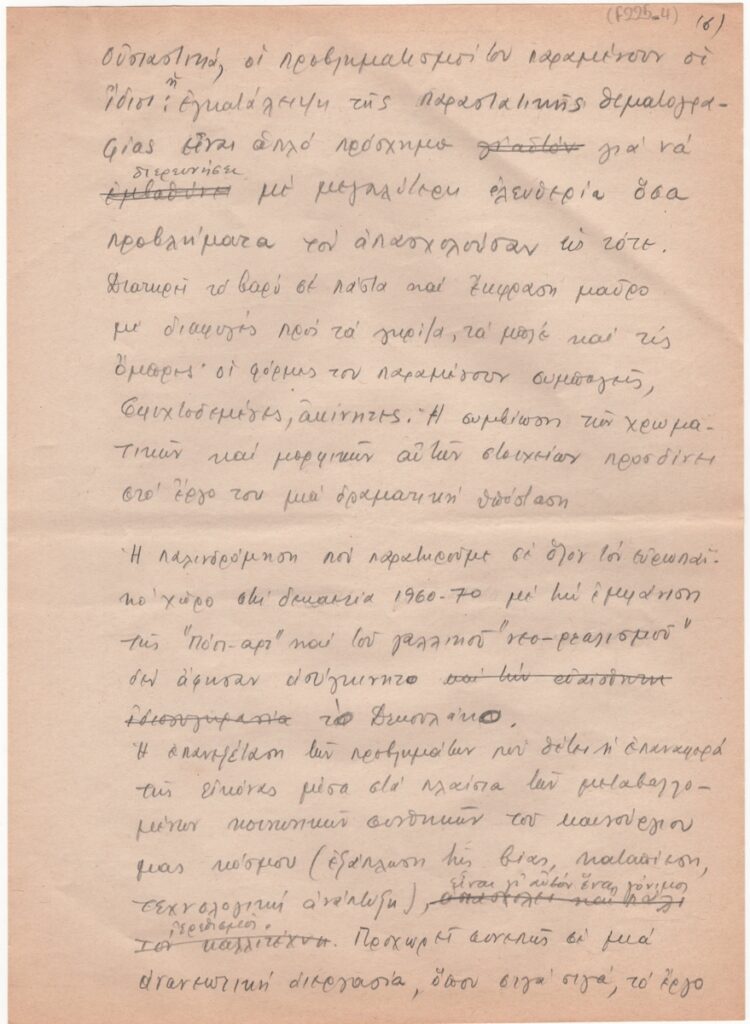 (F225-4) (6)
Οὐσιαστικά, οἱ προβληματισμοί του παραμένουν οἱ
ἴδιοι: ἡ ἐγκατάλειψη τῆς παραστατικῆς θεματογρα-
φίας εἶναι ἁπλό πρόσχημα γιά νά
διερευνήσει
μέ μεγαλύτερη ἐλευθερία ὅσα
προβλήματα τόν ἀπασχολοῦσαν ὡς τότε.
Διατηρεῖ τό βαρύ σέ πάστα καί ἔκφραση μαῦρο
μέ διαφυγές πρός τά γκρίζα, τά μπλέ καί τίς
ὄμπρες· οἱ φόρμες του παραμένουν συμπαγεῖς,
σφιχτοδεμένες, ἀκίνητες. Ἡ συμβίωση τῶν χρωμα-
τικῶν καί μορφικῶν αὐτῶν στοιχείων προσδίνει
στό ἔργο του μιά δραματική ὑπόσταση
Ἡ παλινδρόμηση πού παρατηροῦμε σέ ὅλον τόν εὐρωπαϊ-
κό χῶρο στή δεκαετία 1960-70 μέ τήν ἐμφάνιση
τῆς "Πόπ-αρτ" καί τοῦ γαλλικοῦ "νεο-ρεαλισμοῦ"
δέν ἄφησαν ἀσυγκίνητο καί τήν εὐαίσθητη
ἰδιοσυγκρασία τό Δεκουλάκο.
Ἡ ἐπανεξέταση τῶν προβλημάτων πού θέτει ἡ ἐπαναφορά
τῆς εἰκόνας μέσα στά πλαίσια τῶν μεταβαλλο-
μένων κοινωνικῶν συνθηκῶν τοῦ καινούργιου
μας κόσμου (ἐξάπλωση τῆς βίας, καταπίεση,
εἶναι γι' αὐτόν ἕνας γόνιμος
τεχνολογική ἀνάπτυξη), ἀπασχολεῖ καί πάλι
ἐρεθισμός.
τόν καλλιτέχνη. Προχωρεῖ συνεπῶς σέ μιά
ἀνανεωτική διεργασία, ὅπου σιγά σιγά, τό ἔργο